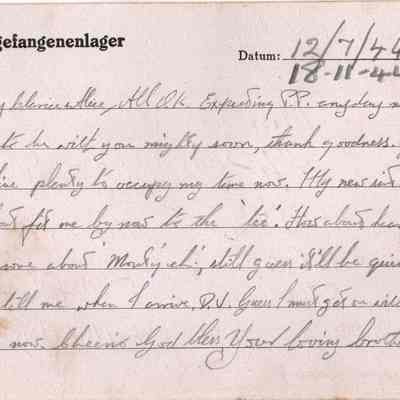 gefangenenlager
Datum: 12/7/44
18-11-44
Alice, All O.K. Expecting P.P. anyday
to be with you mighty soon, thank goodness.
plenty to occupy my time now. My new
for me by now to the 'tee'. How about
some about 'Monty' eh!, still guess it'll be
till me when I arrive, D.V. Guess I must get on
now. Cheerio God bless, Your loving brothe